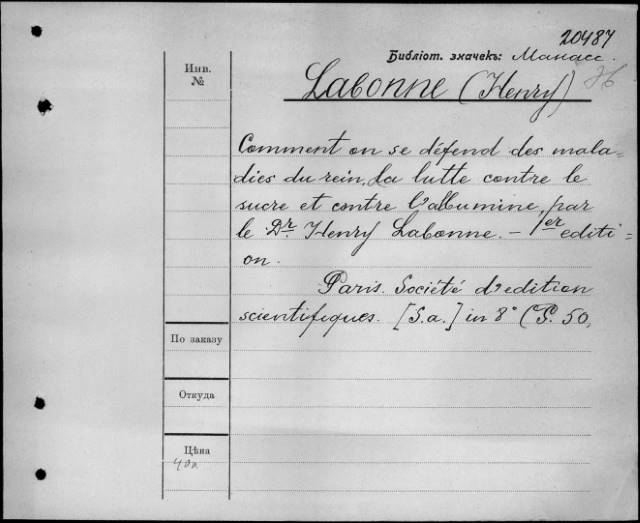 20487
Библіот. значекъ: Манасс.
Инв.
№
Labonne (Henry)
Comment on se défend des mala=
dies du rein, La lutte contre le
sucre et contre l'albumine, par
le Dr Henry Labonne. — 1er editi=
on.
Paris. Société d'edition
scientifiques. [S.a.] in 8° (P. 50,
По заказу
Откуда
Цѣна